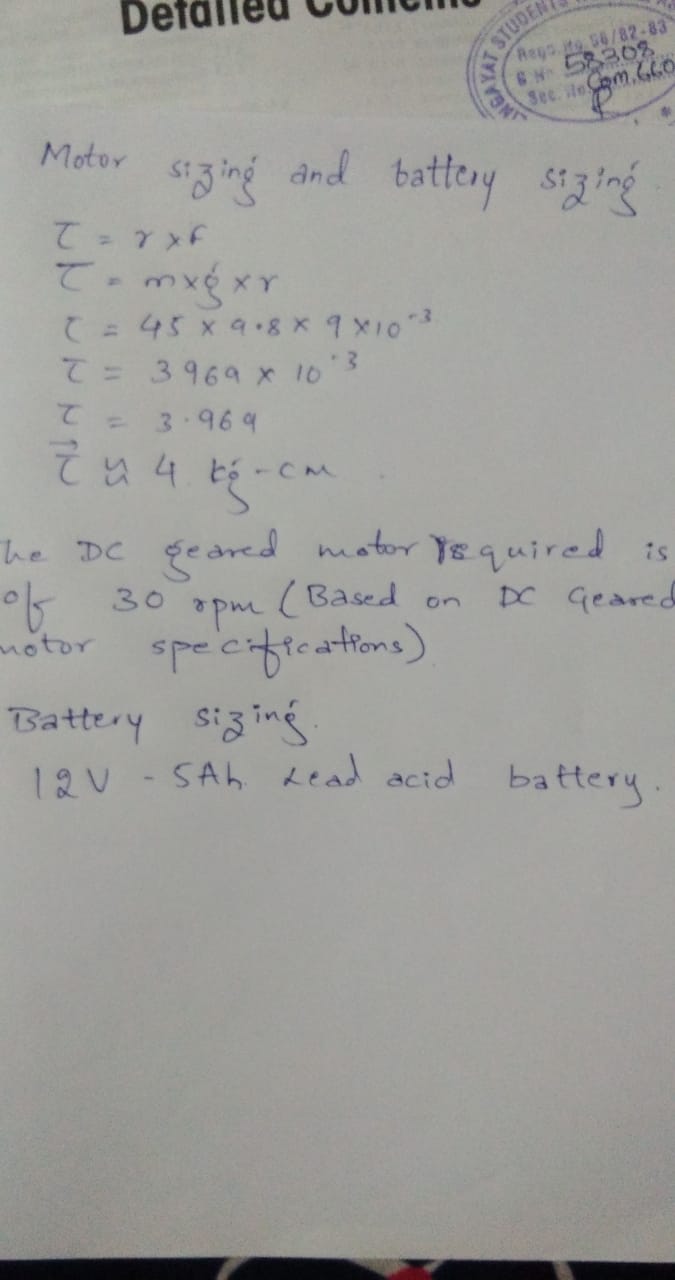 Detailed
STUDENTS
Regd. No. 56/82-83
S No 58308
Sec. No Com, 660
Motor sizing and battery sizing
τ = r x F
τ = m x g x r
τ = 45 x 9.8 x 9 x 10⁻³
τ = 3969 x 10⁻³
τ = 3.969
τ ≈ 4 kg-cm
he DC geared motor required is
of 30 rpm (Based on DC Geared
motor specifications)
Battery sizing.
12V - 5Ah Lead acid battery.